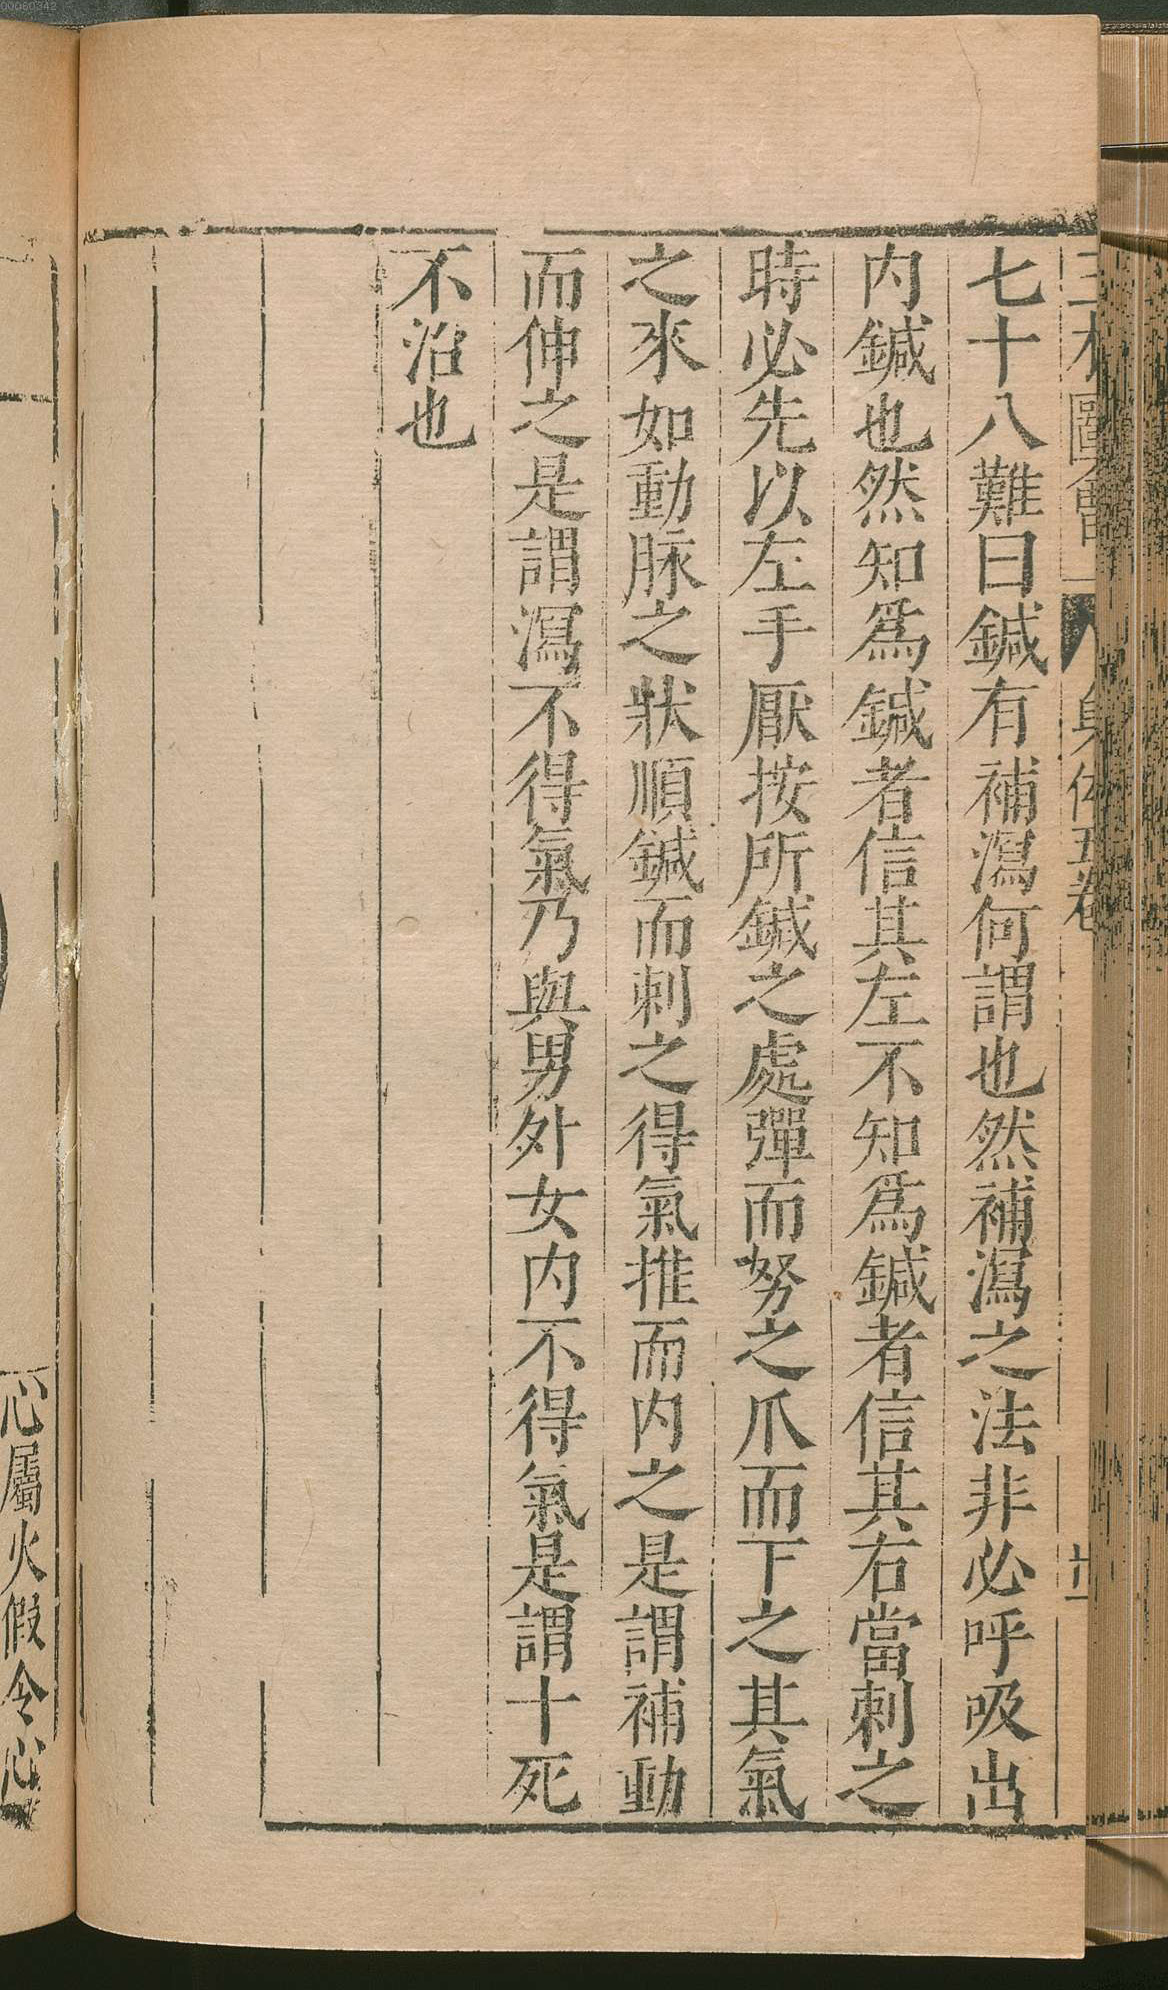 七十八難曰鍼有補瀉何謂也然補瀉之法非必呼吸出
内鍼也然知爲鍼者信其左不知爲鍼者信其右當刺之
時必先以左手厭按所鍼之處彈而努之爪而下之其氣
之來如動脉之狀順鍼而刺之得氣推而内之是謂補動
而伸之是謂瀉不得氣乃與男外女内不得氣是謂十死
不治也
心屬火假令心
00060342